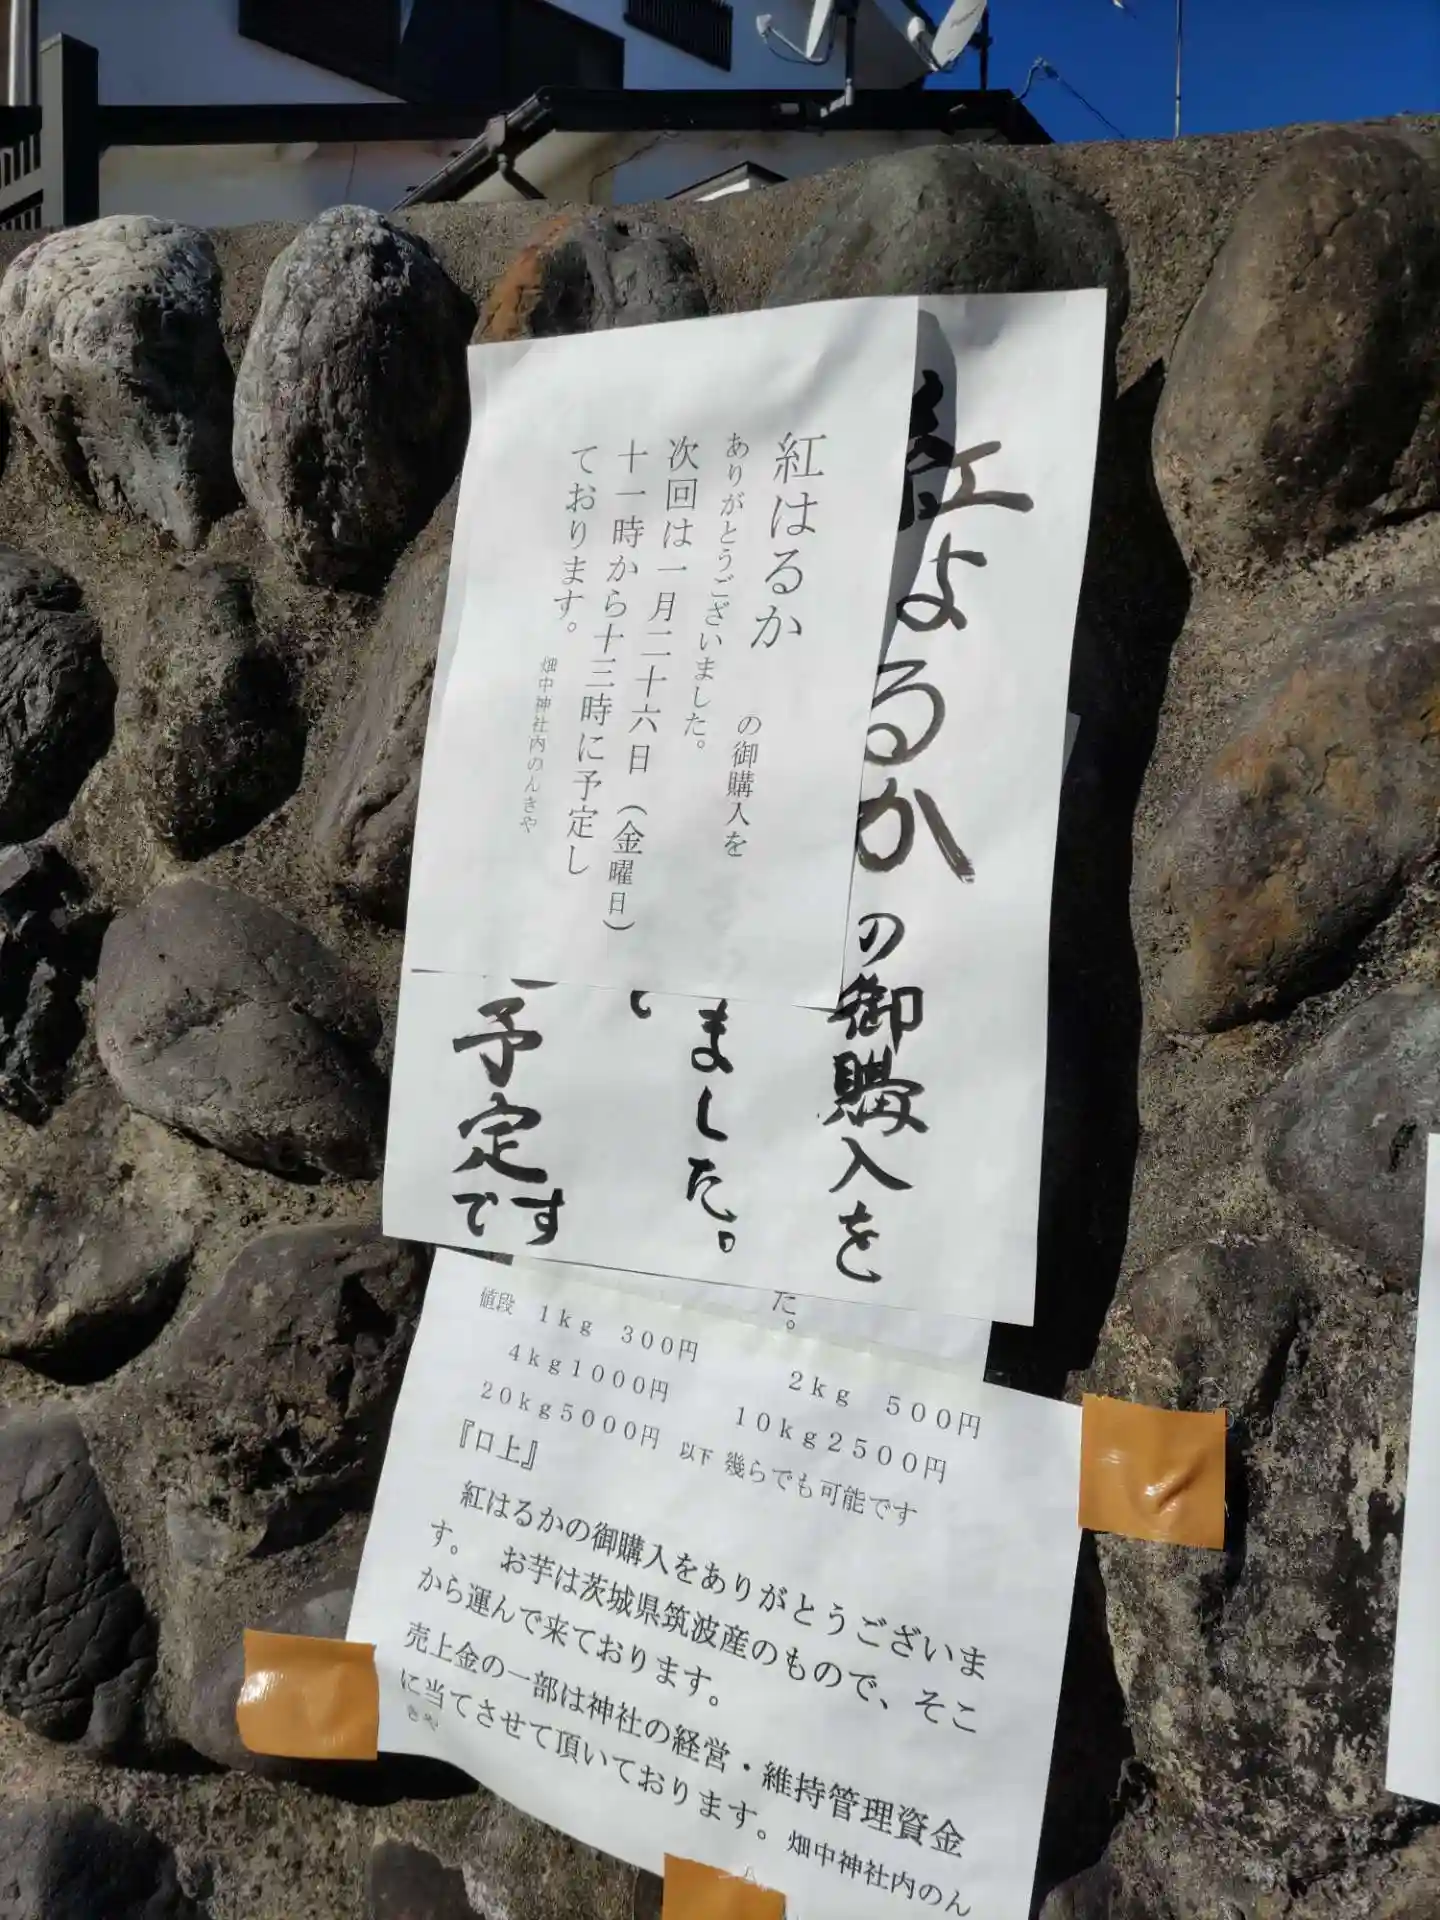 紅はるか
の御購入を
ました。
予定です
紅はるか
の御購入を
ありがとうございました。
次回は一月二十六日(金曜日)
十一時から十三時に予定し
ております。
畑中神社内のんきや
た。
値段 1kg 300円 2kg 500円
4kg1000円 10kg2500円
20kg5000円 以下 幾らでも可能です
『口上』
紅はるかの御購入をありがとうございま
す。 お芋は茨城県筑波産のもので、そこ
から運んで来ております。
売上金の一部は神社の経営・維持管理資金
に当てさせて頂いております。畑中神社内のん
きや